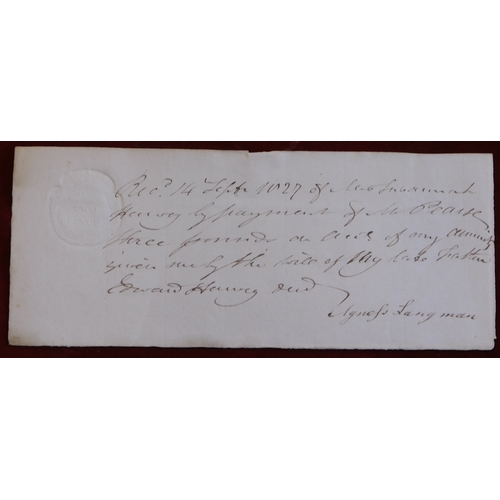 Rec.d 14th Sept 1827 of Mrs Susannah
Harvey by payment of Mr Pearse
three pounds on acct of my annuity
given me by the will of My late Father
Edward Harvey decd
Agness Langman